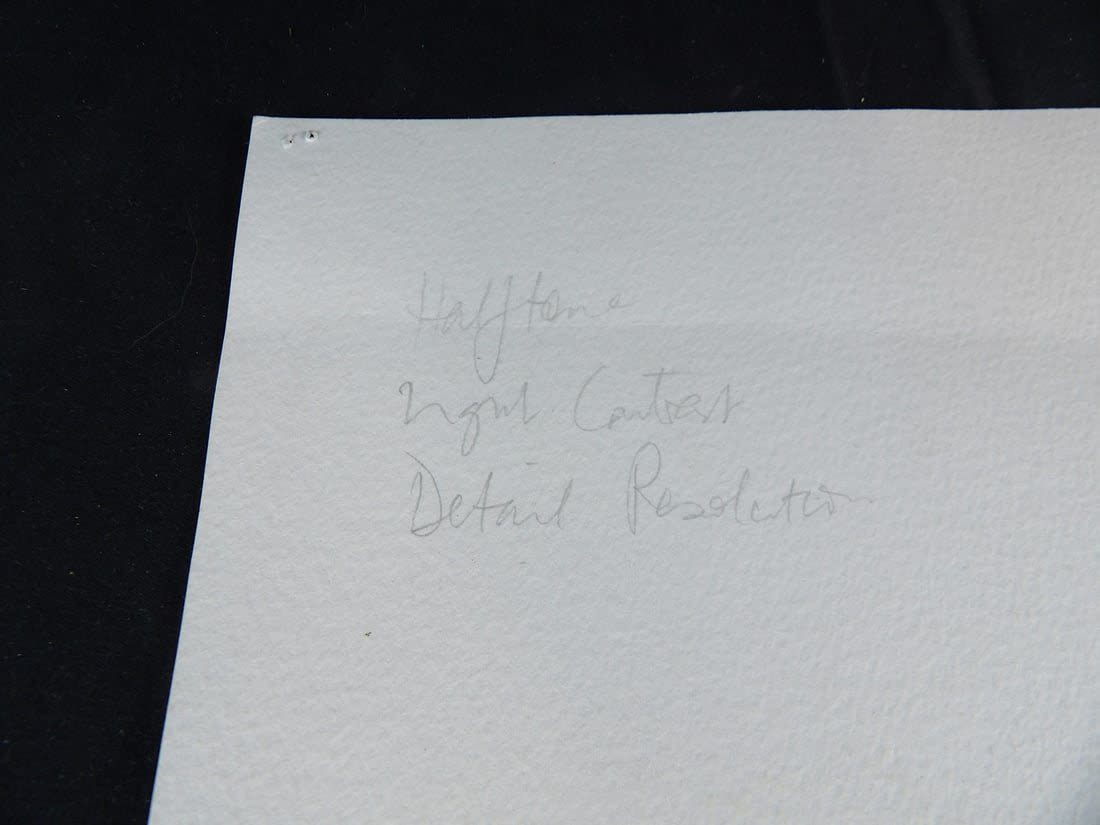 Halftone
Input Contrast
Detail Resolution